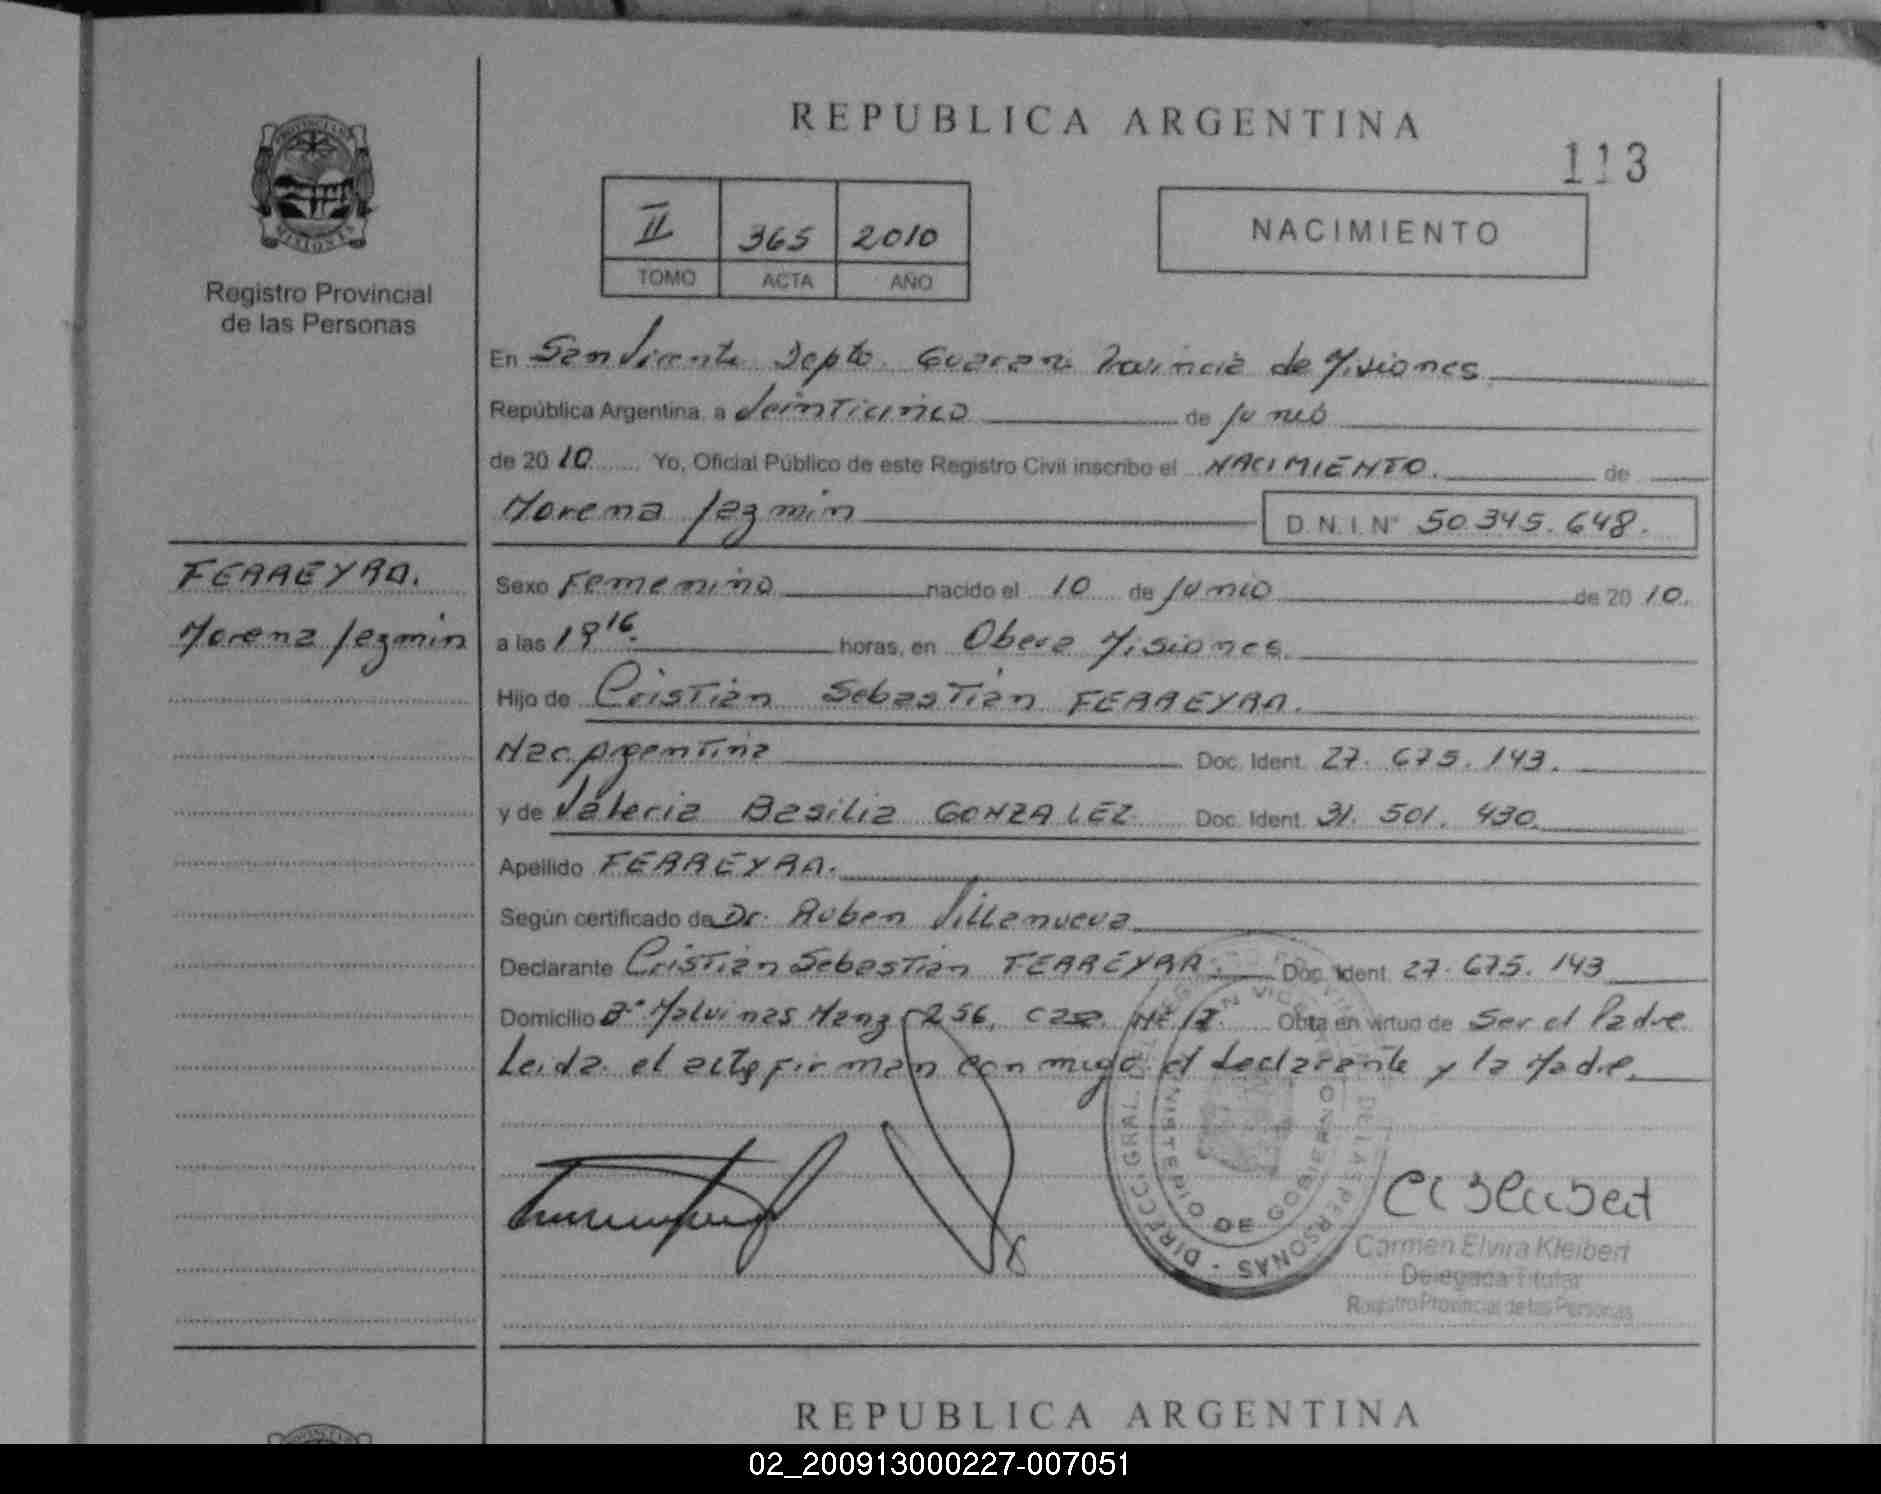 REPUBLICA ARGENTINA
113
PROVINCIA DE
MISIONES
Registro Provincial
de las Personas
II 365 2010
TOMO ACTA AÑO
NACIMIENTO
En San Vicente Depto. Guarani Provincia de Misiones
República Argentina, a Veinticinco de Junio
de 2010 Yo, Oficial Público de este Registro Civil inscribo el NACIMIENTO. de
Morena Jazmin D.N.I. Nº 50.345.648.
FERREYRA.
Morena Jazmin
Sexo Femenino nacido el 10 de Junio de 2010.
a las 19 16. horas, en Obera Misiones.
Hijo de Cristian Sebastian FERREYRA.
Nac. Argentina Doc. Ident. 27.675.143.
y de Valeria Basilia GONZALEZ Doc. Ident. 31.501.430.
Apellido FERREYRA.
Según certificado de Dr. Ruben Villanueva
Declarante Cristian Sebastian FERREYRA Doc. Ident. 27.675.143
Domicilio Bº Malvinas Manz 256, Casa Obra en virtud de Ser el Padre
Leida el acta firman con migo el declarante y la Madre.
DIRECC. GRAL. DEL REGISTRO PROVINCIAL DE LAS PERSONAS
SAN VICENTE
MINISTERIO DE GOBIERNO
Carmen Elvira Kleibert
Delegada Titular
Registro Provincial de las Personas
REPUBLICA ARGENTINA
02_200913000227-007051